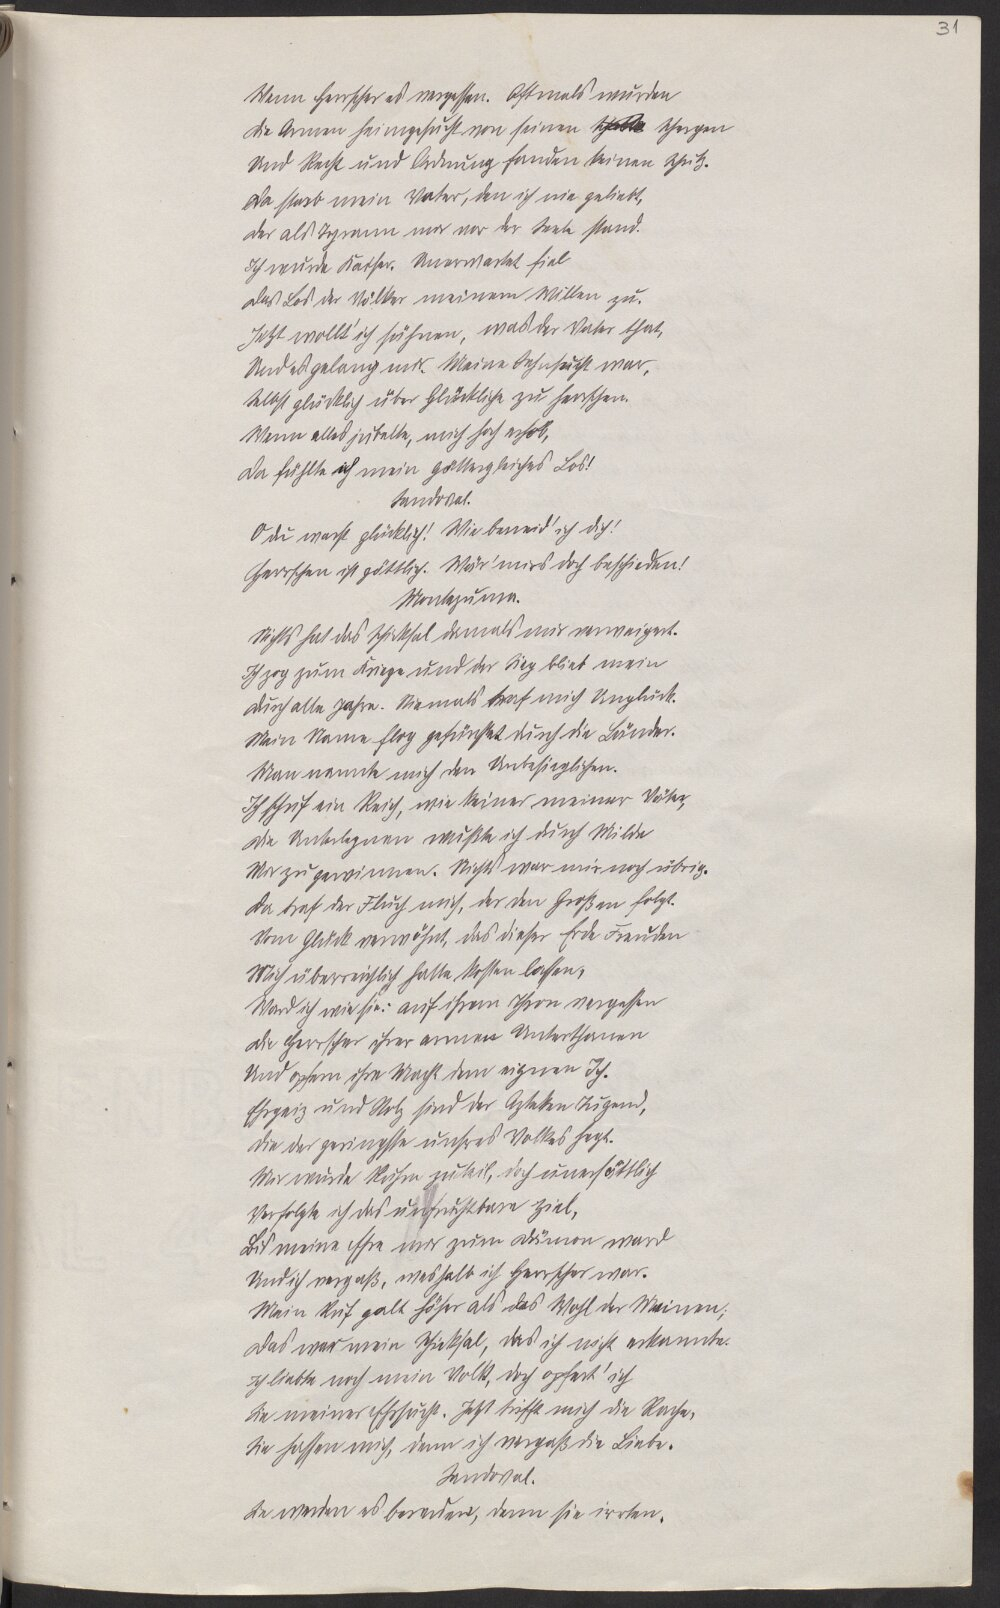 31
Wenn Herrscher es vergessen. Oftmals wurden
Die Armen heimgesucht von seinen Schergen
Und Recht und Ordnung fanden keinen Schutz.
Da starb mein Vater, den ich nie geliebt,
Der als Tyrann mir vor der Seele stand.
Ich wurde Kaiser. Unerwartet fiel
Das Los der Völker meinem Willen zu.
Jetzt wollt' ich sühnen, was der Vater that,
Und es gelang mir. Meine Sehnsucht war,
Selbst glücklich über Glückliche zu herrschen.
Wenn alles jubelte, mich hoch erhob,
Da fühlte ich mein göttergleiches Los!
Sandoval.
O du warst glücklich! Wie beneid' ich dich!
Herrschen ist göttlich. Wär' mirs doch beschieden!
Montezuma.
Nichts hat das Schicksal damals mir verweigert.
Ich zog zum Kriege und der Sieg blieb mein
Durch alle Jahre. Niemals traf mich Unglück.
Mein Name flog gefürchtet durch die Länder.
Man nannte mich den Unbesieglichen.
Ich schuf ein Reich, wie keiner meiner Väter,
Die Unterlegnen wußte ich durch Milde
Mir zu gewinnen. Nichts war mir noch übrig.
Da traf der Fluch mich, der den Großen folgt.
Vom Glück verwöhnt, das dieser Erde Freuden
Mich überreichlich hatte kosten lassen,
Ward ich wie sie: auf ihrem Thron vergessen
Die Herrscher ihrer armen Unterthanen
Und opfern ihre Macht dem eignen Ich.
Ehrgeiz und Stolz sind der Azteken Tugend,
Die der geringste unsres Volkes hegt.
Mir wurde Ruhm zuteil, doch unersättlich
Verfolgte ich das unfruchtbare Ziel,
Bis meine Ehre mir zum Dämon ward
Und ich vergaß, weshalb ich Herrscher war.
Mein Ruf galt höher als das Wohl der Meinen;
Das war mein Schicksal, das ich nicht erkannte.
Ich liebte noch mein Volk, doch opfert' ich
Sie meiner Ehrsucht. Jetzt trifft mich die Rache,
Sie hassen mich, denn ich vergaß die Liebe.
Sandoval.
Sie werden es bereuen, denn sie irrten.